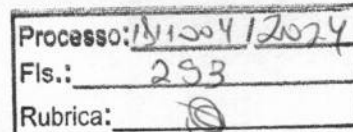 Processo: /2024
Fls.: 293
Rubrica: